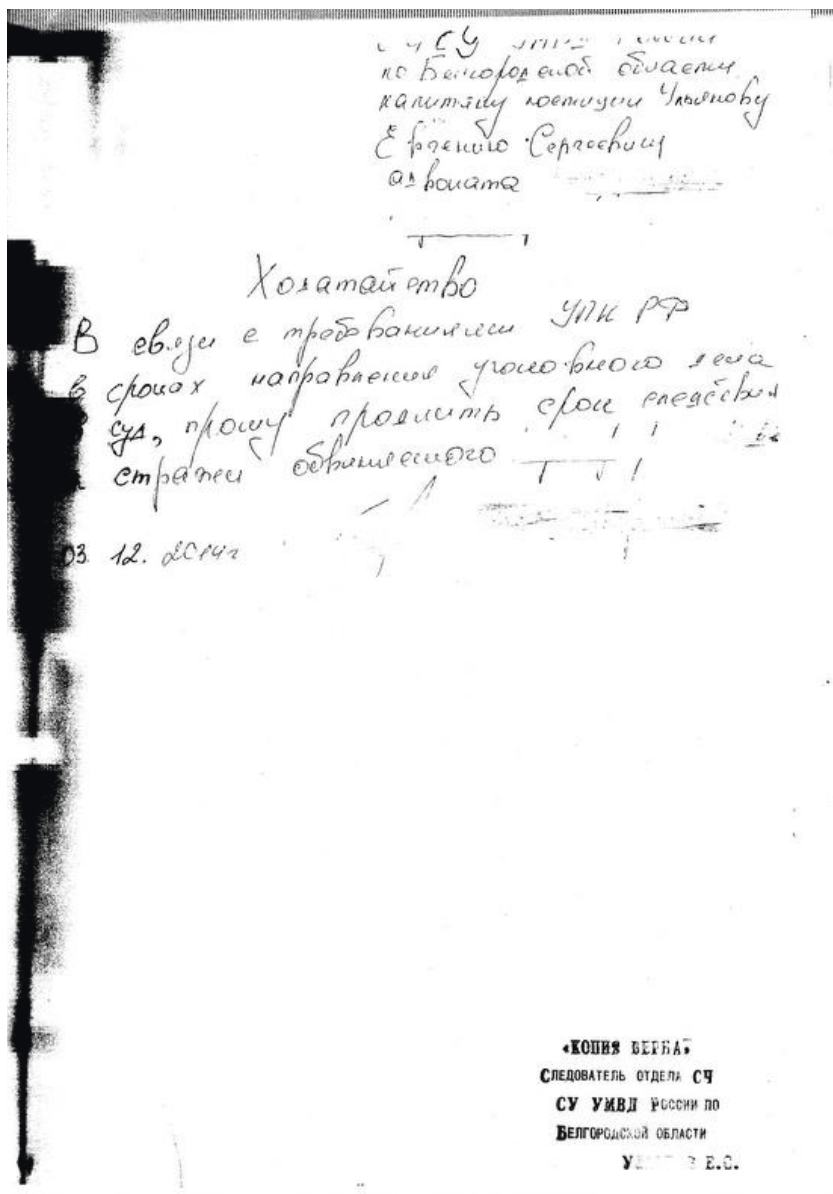 СУ
по Белгородской области
капитану юстиции Ульянову
Евгению Сергеевичу
адвоката
Ходатайство
В связи с требованиями УПК РФ
в сроках направления уголовного дела
суд, прошу продлить срок следствия
стражи обвиняемого
03. 12. 2014г
«КОПИЯ ВЕРНА»
СЛЕДОВАТЕЛЬ ОТДЕЛА СЧ
СУ УМВД РОССИИ ПО
БЕЛГОРОДСКОЙ ОБЛАСТИ
Е.С.